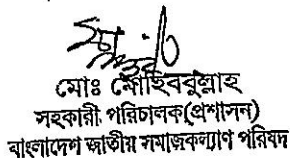 মোঃ মোহিববুল্লাহ
সহকারী পরিচালক(প্রশাসন)
বাংলাদেশ জাতীয় সমাজকল্যাণ পরিষদ